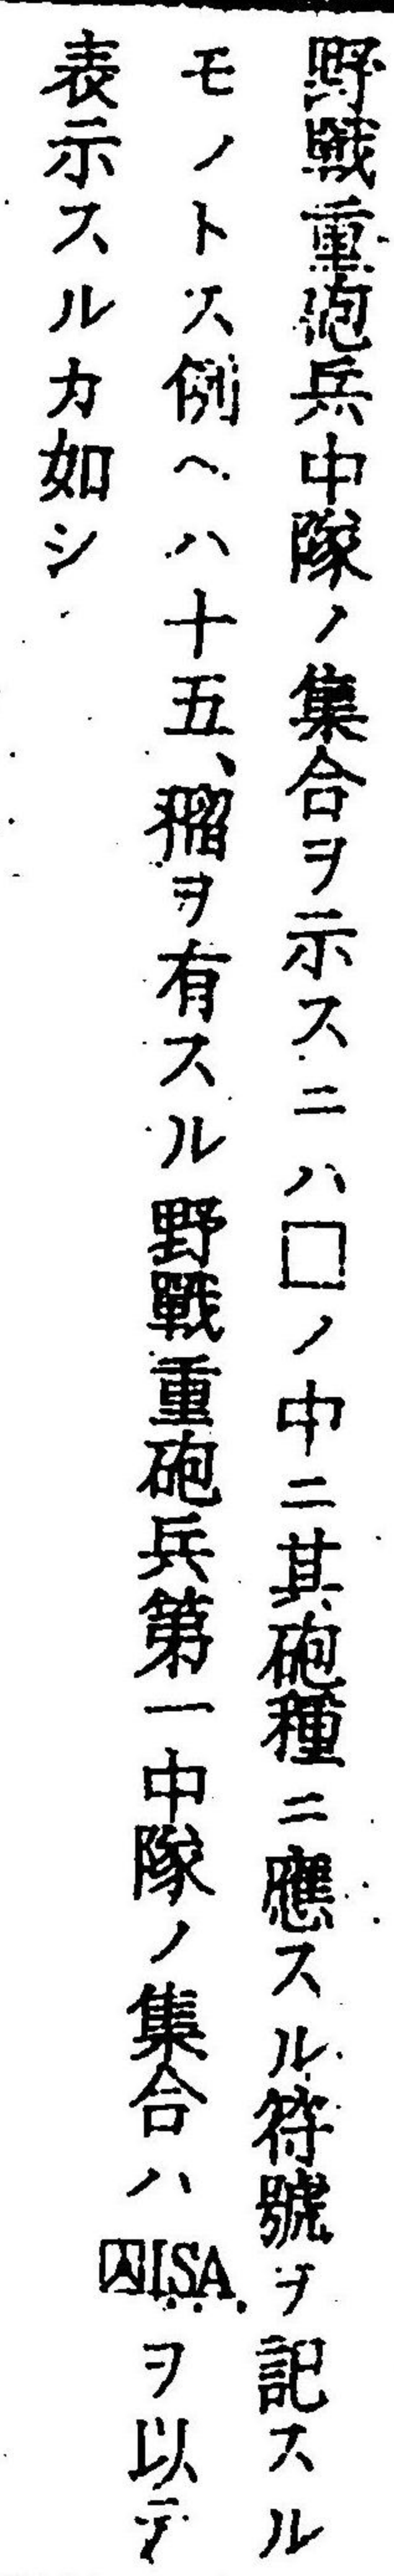 野戰重砲兵中隊ノ集合ヲ示スニハ□ノ中ニ其砲種ニ應スル符號ヲ記スル
モノトス例ヘハ十五、榴ヲ有スル野戰重砲兵第一中隊ノ集合ハISA.ヲ以テ
表示スルカ如シ